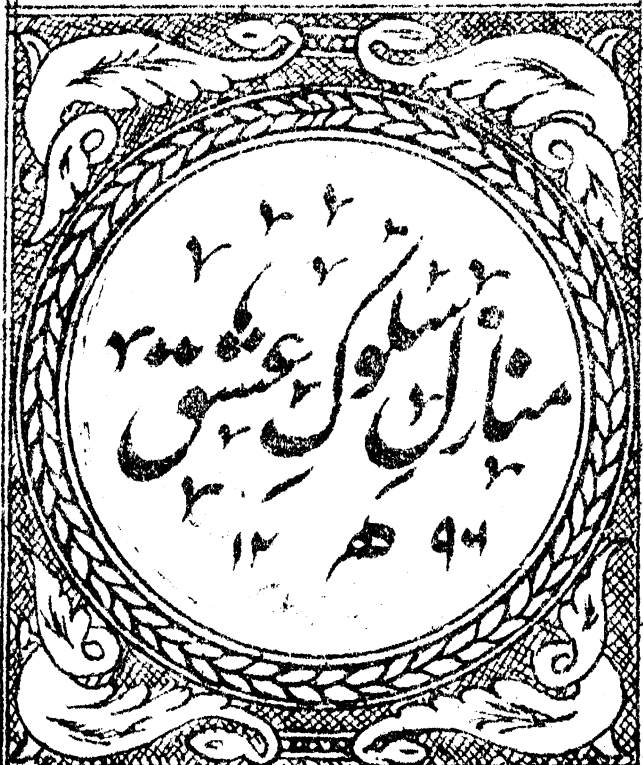 منازلِ سلوکِ عشق
۱۲ ھ ۹۶